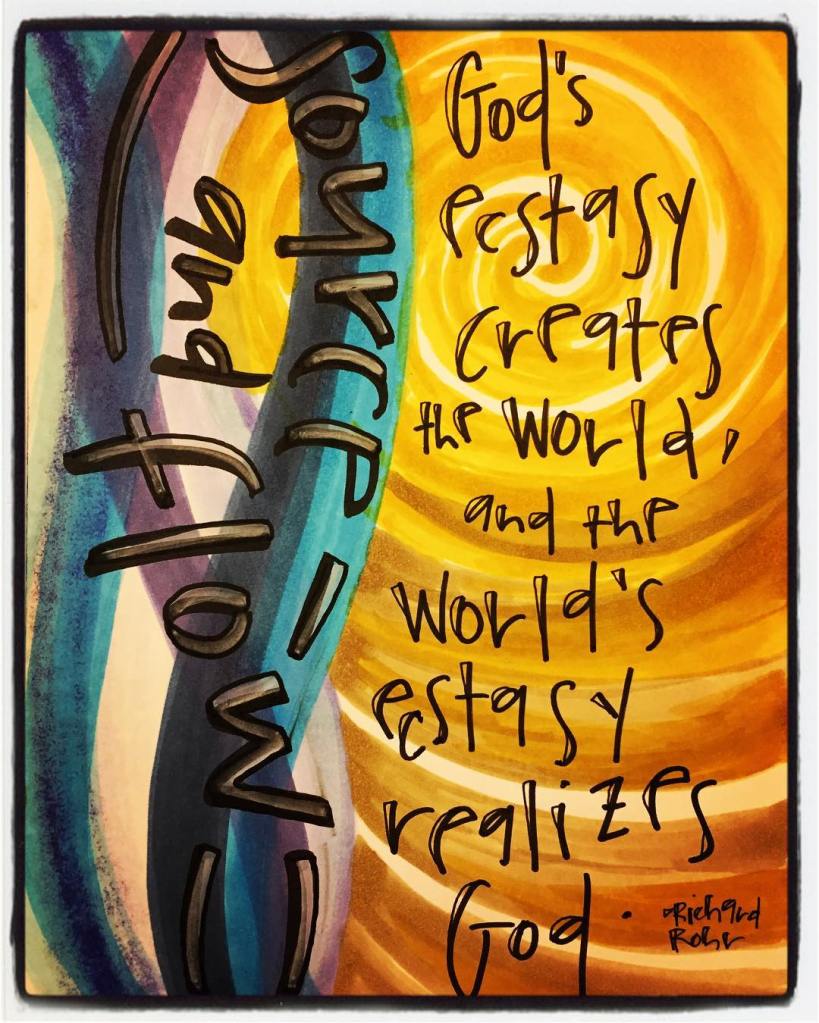 Source
and flow
God's
ecstasy
creates
the world,
and the
world's
ecstasy
realizes
God.
Richard
Rohr